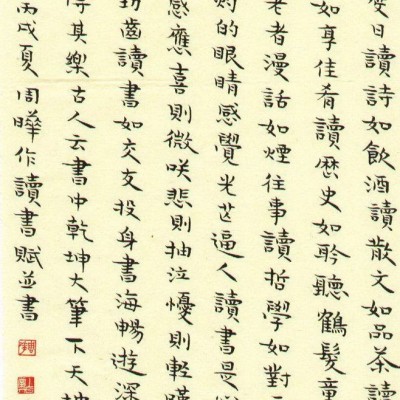 日讀詩如飲酒讀散文如品茶讀
如享佳肴讀歷史如聆聽鶴髮童
老者漫話如煙往事讀哲學如對
灼的眼睛感覺光芒逼人讀書是
感應喜則微咲悲則抽泣憂則輕
切齒讀書如交友投身書海暢遊深
得其樂古人云書中乾坤大筆下天
丙戌夏周曄作讀書賦並書